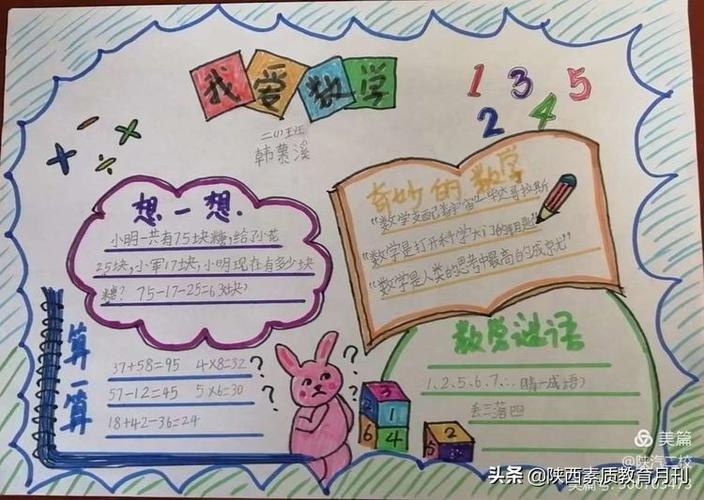 我爱数学
二(1)班
韩慕溪
1 3 5
2 4
想一想.
小明一共有75块糖,给了小花
25块,小军17块,小明现在有多少块
糖? 75-17-25=63(块)
奇妙的数学
"数学支配着宇宙"—毕达哥拉斯
"数学是打开科学大门的钥匙"
"数学是人类的思考中最高的成就"
算一算
37+58=95 4×8=32
57-12=45 5×6=30
18+42-36=24
? ? ? ? ?
3
2 1
6 4
2
5
数字谜语
1、2、5、6、7、.. (猜一成语)
丢三落四
美篇
@陕汽二校
头条 @陕西素质教育月刊